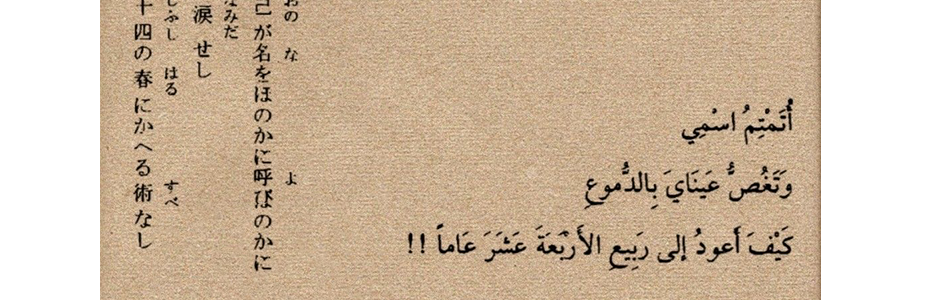 أُتَمْتِمُ اسْمِي
وَتَغُصُّ عَينَايَ بِالدُّموعِ
كَيْفَ أَعودُ إلى رَبِيعِ الأَرْبْعَةَ عَشَرَ عَاماً !!
おの な よ
己が名をほのかに呼びのかに
なみだ
涙せし
ふし はる すべ
十四の春にかへる術なし